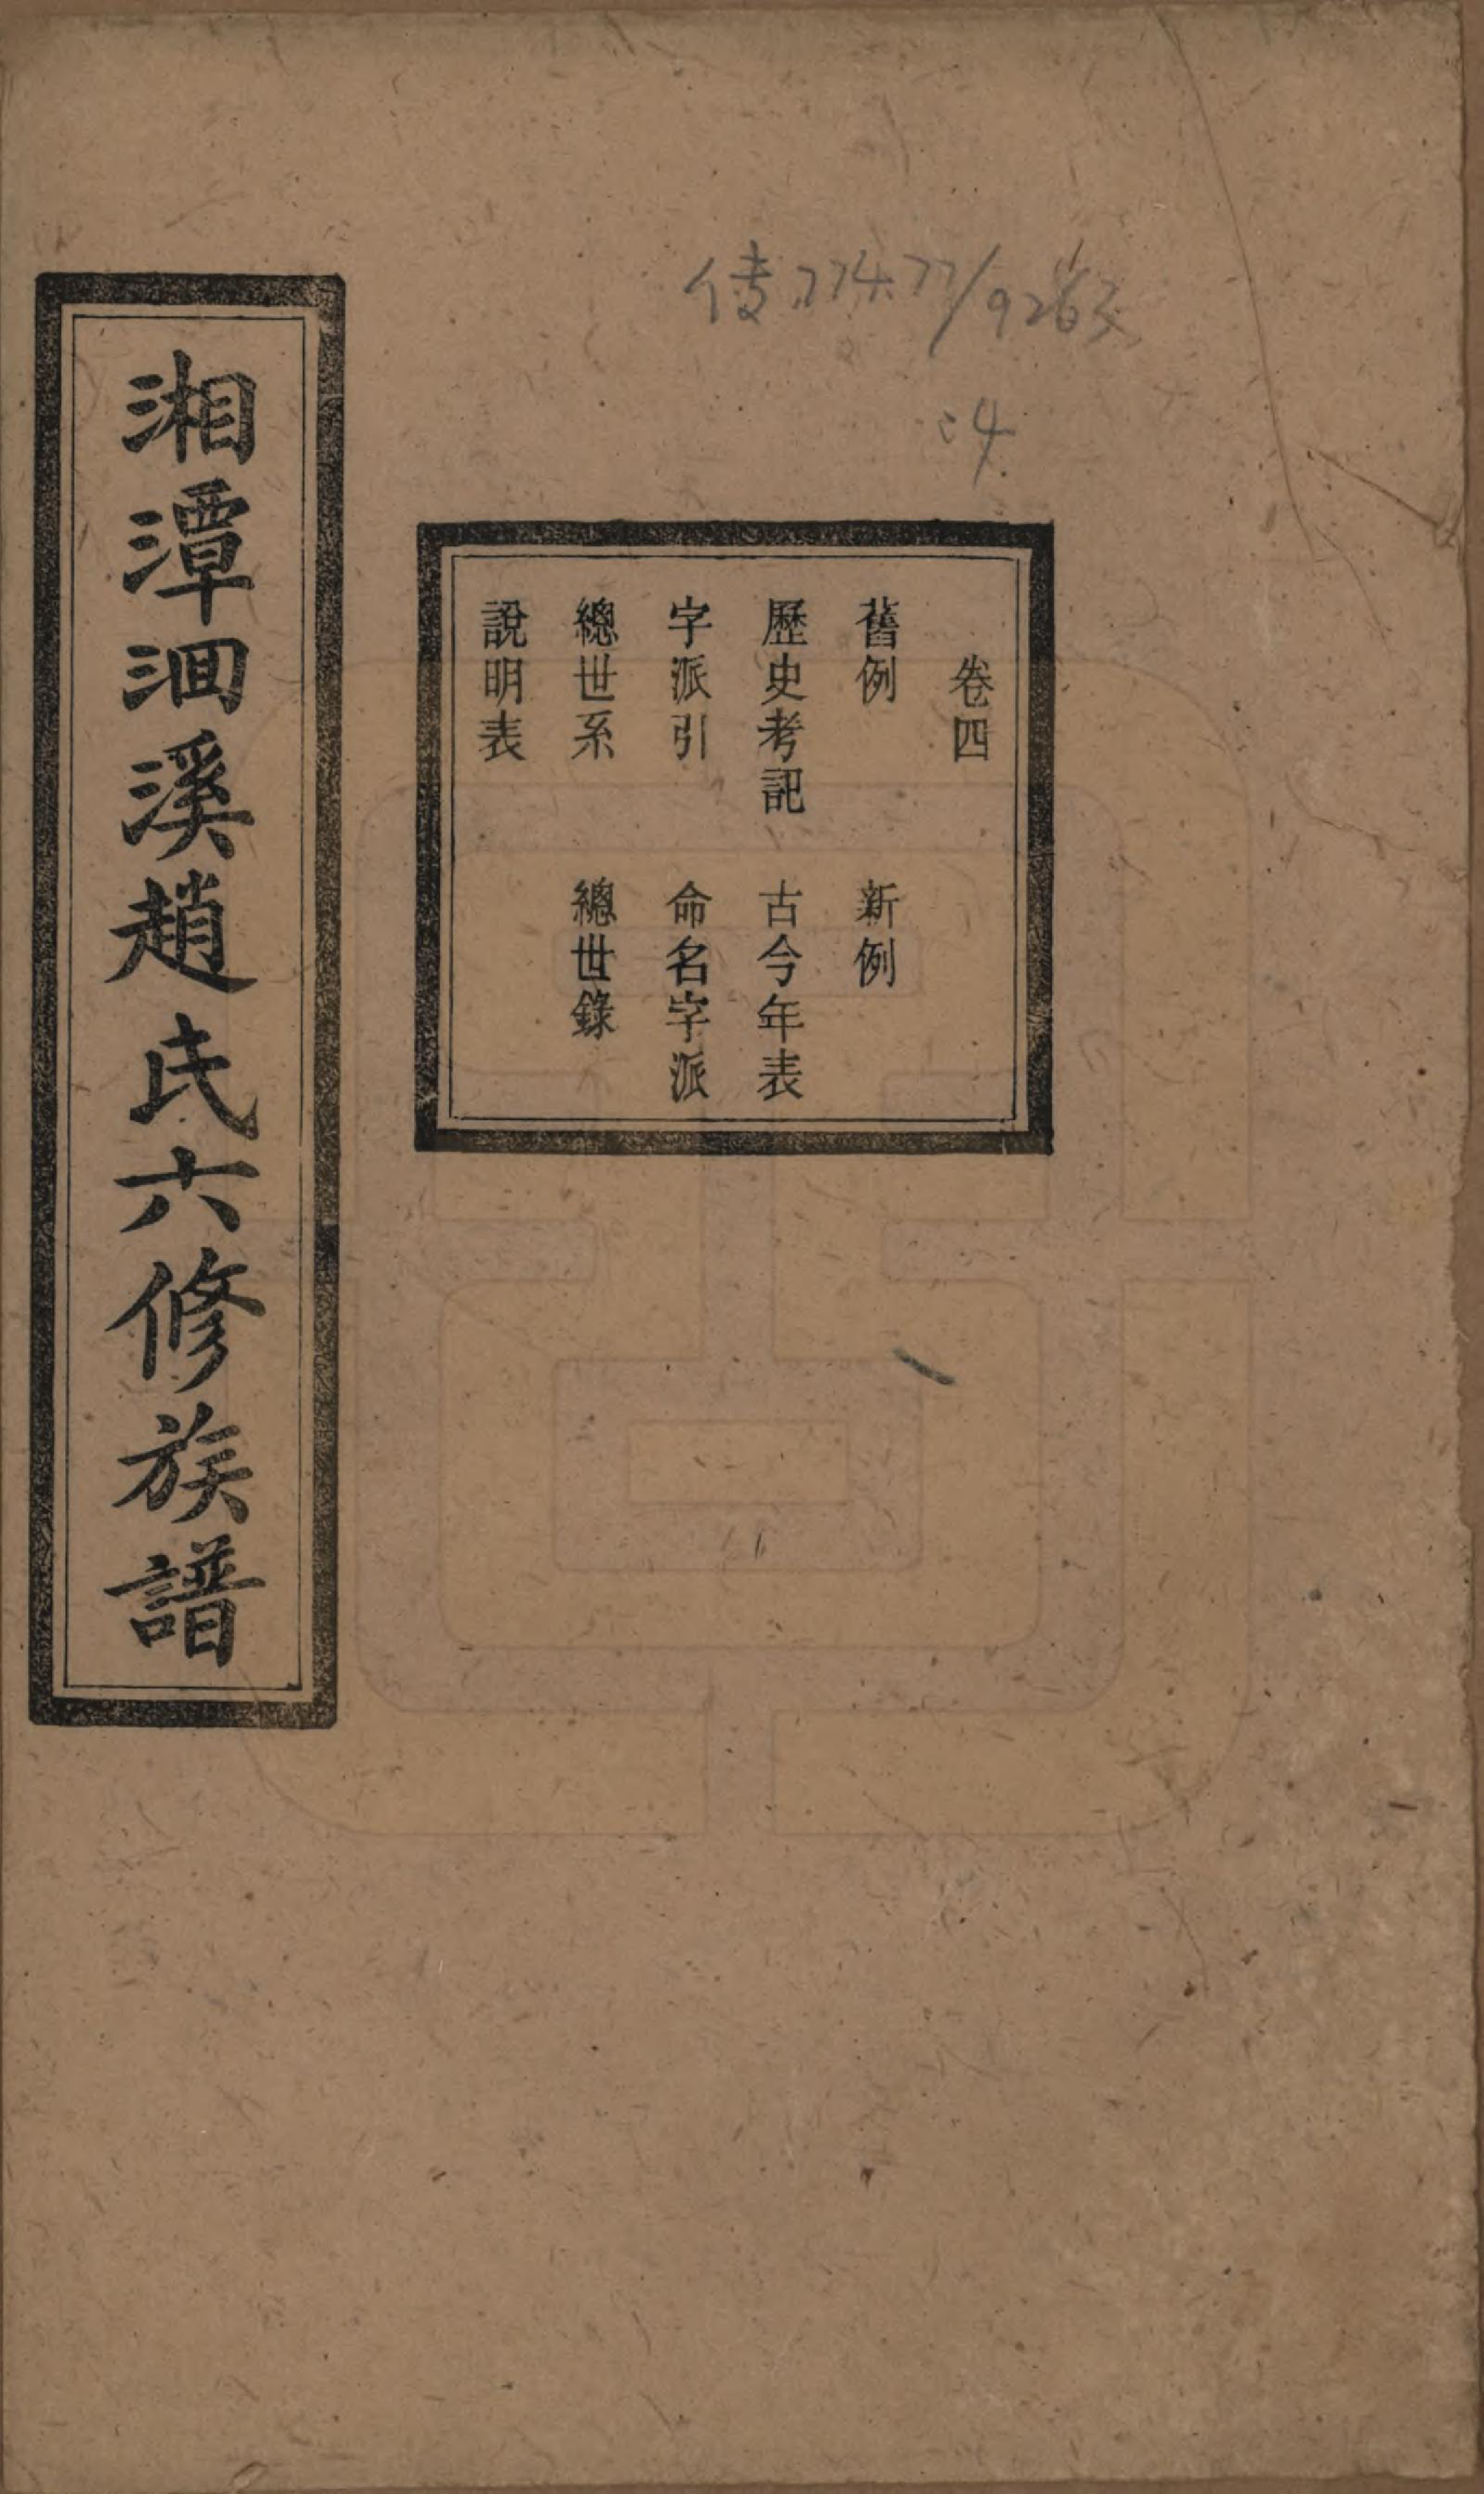 卷四
舊例　新例
歷史考記　古今年表
字派引　命名字派
總世系　總世錄
說明表
湘潭泗溪趙氏六修族譜
传774.77/9263
:4